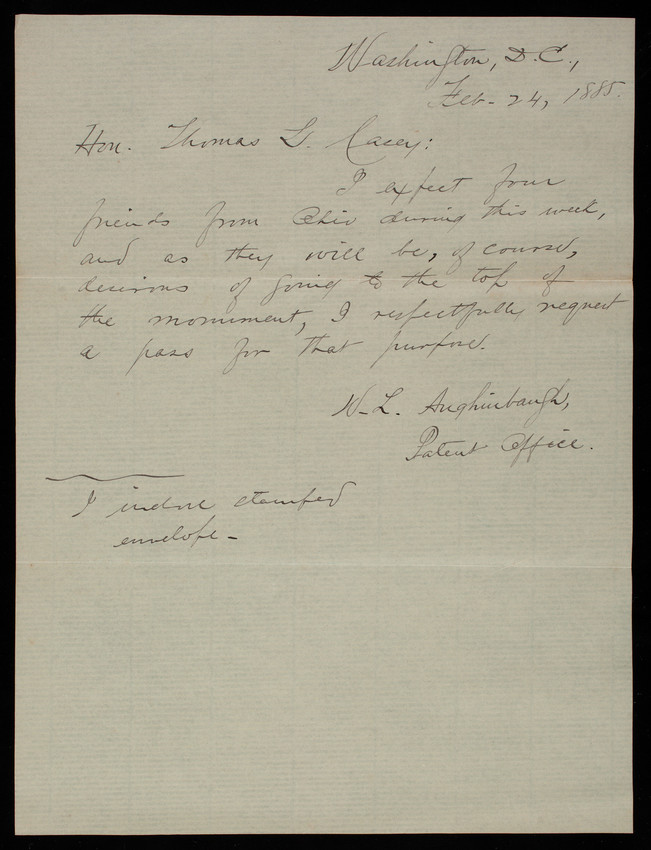 Washington, D.C.,
Feb. 24, 1885.
Hon. Thomas L. Casey:
I expect four
friends from Ohio during this week,
and as they will be, of course,
desirous of going to the top of
the monument, I respectfully request
a pass for that purpose.
W. L. Aughinbaugh,
Patent Office.
I inclose stamped
envelope-